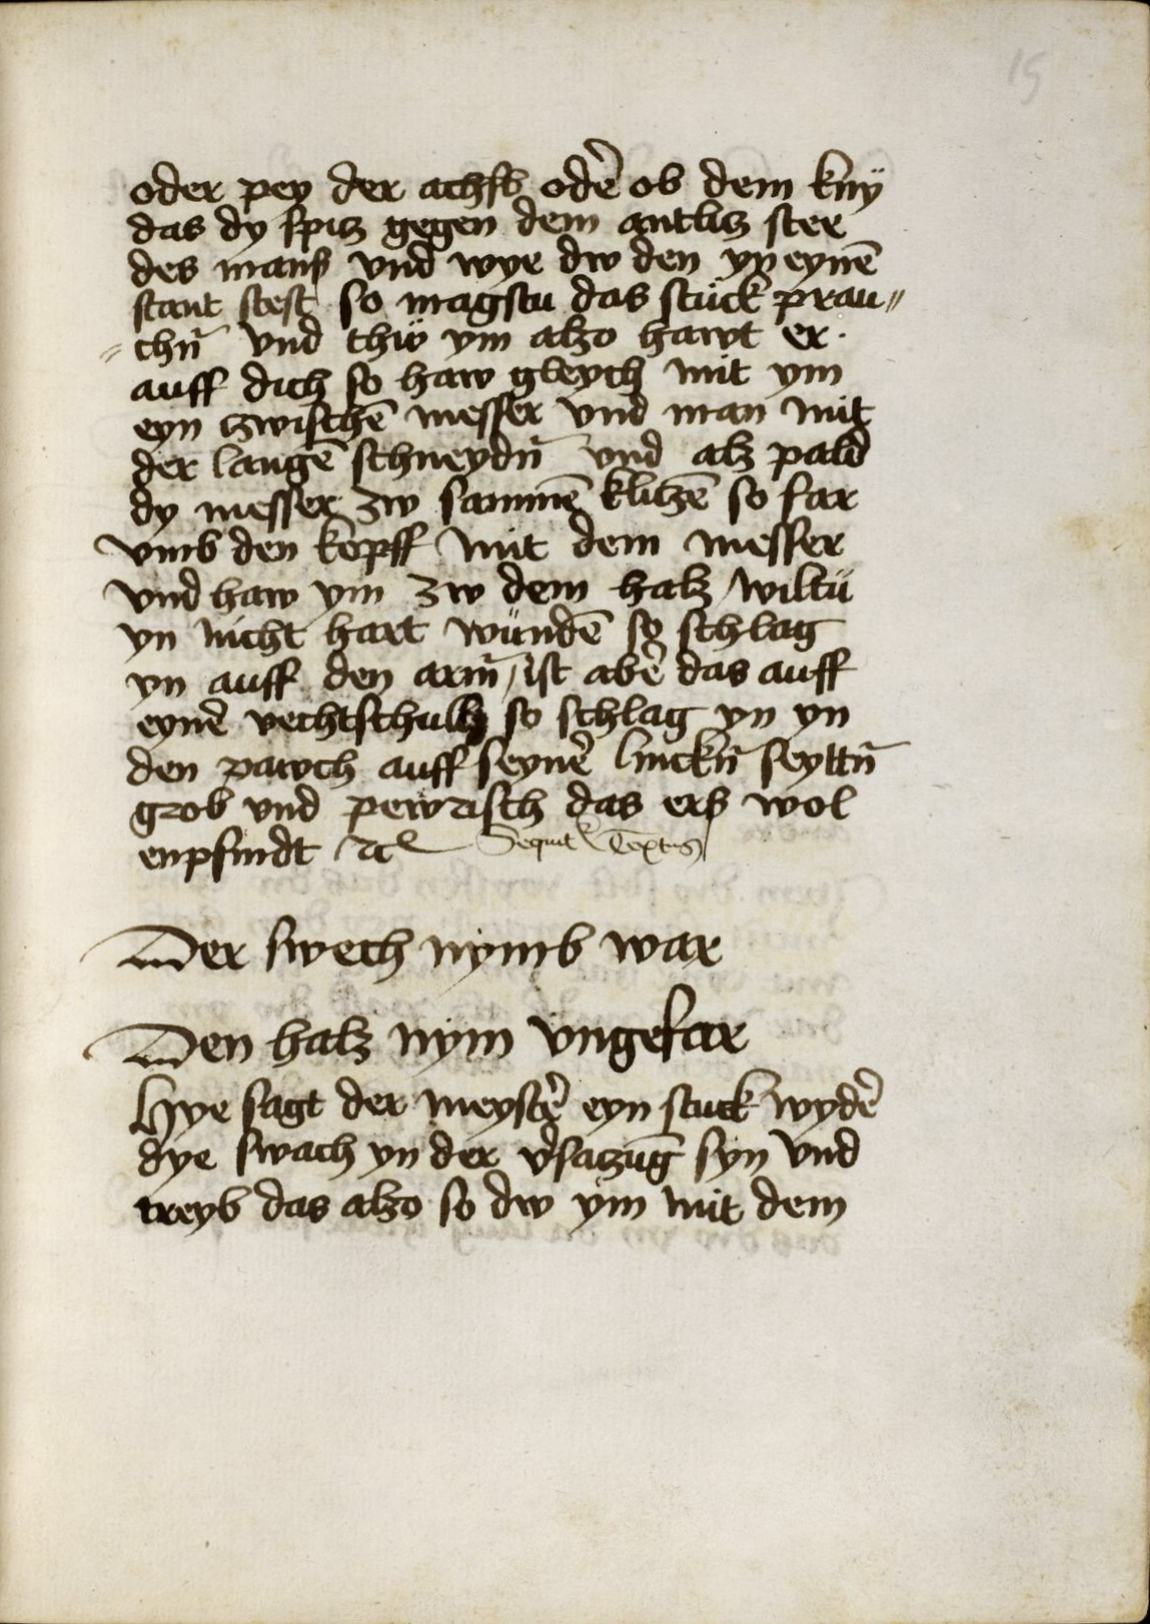 15
oder pey der achsl odẽ ob dem knÿ
das dy spitz gegen dem antlitz stee
des mans vnd wye dw den yn eynẽ
stant stest so magstu das stück prau〃
〃chn̄ vnd thw ym alzo hawt er
auff dich so haw gleych mit ym
eyn zwischẽ messer vnd man mit
der langẽ schneydn̄ vnd alz pald
dy messer zw sammẽ klitzẽ so far
vmb den kopff mit dem messer
vnd haw ym zw dem halz wiltü
yn nicht hart wündẽ so schlag
yn auff den arm̄ / ist abẽ das auff
eynẽ vechtschulz so schlag yn yn
den pawch auff seynẽ linckn̄ seyttn̄
grob vnd pewrisch das erß wol
enpfindt ⁊cͤ Sequitͬ Textus
Der swech nymb war
Den halz nym vngefar
Hye sagt der meystẽ eyn stuck wydẽ
dye swach yn der v̓satzūg syn vnd
treyb das alzo so dw ym mit dem